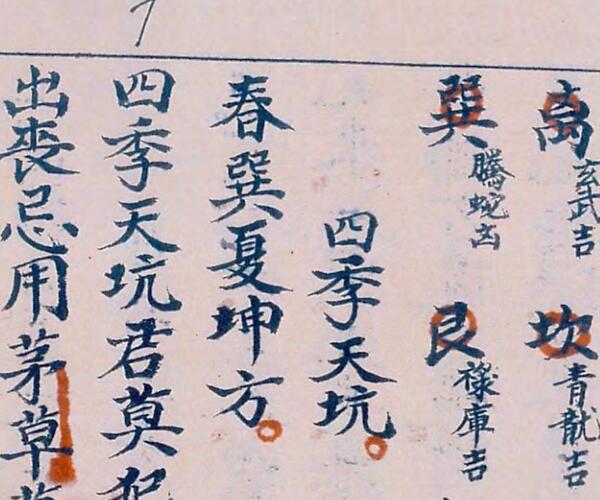 离玄武吉 坎青龍吉
巽螣蛇凶 艮祿庫吉
四季天坑
春巽夏坤方
四季天坑君莫犯
出喪忌用茅草